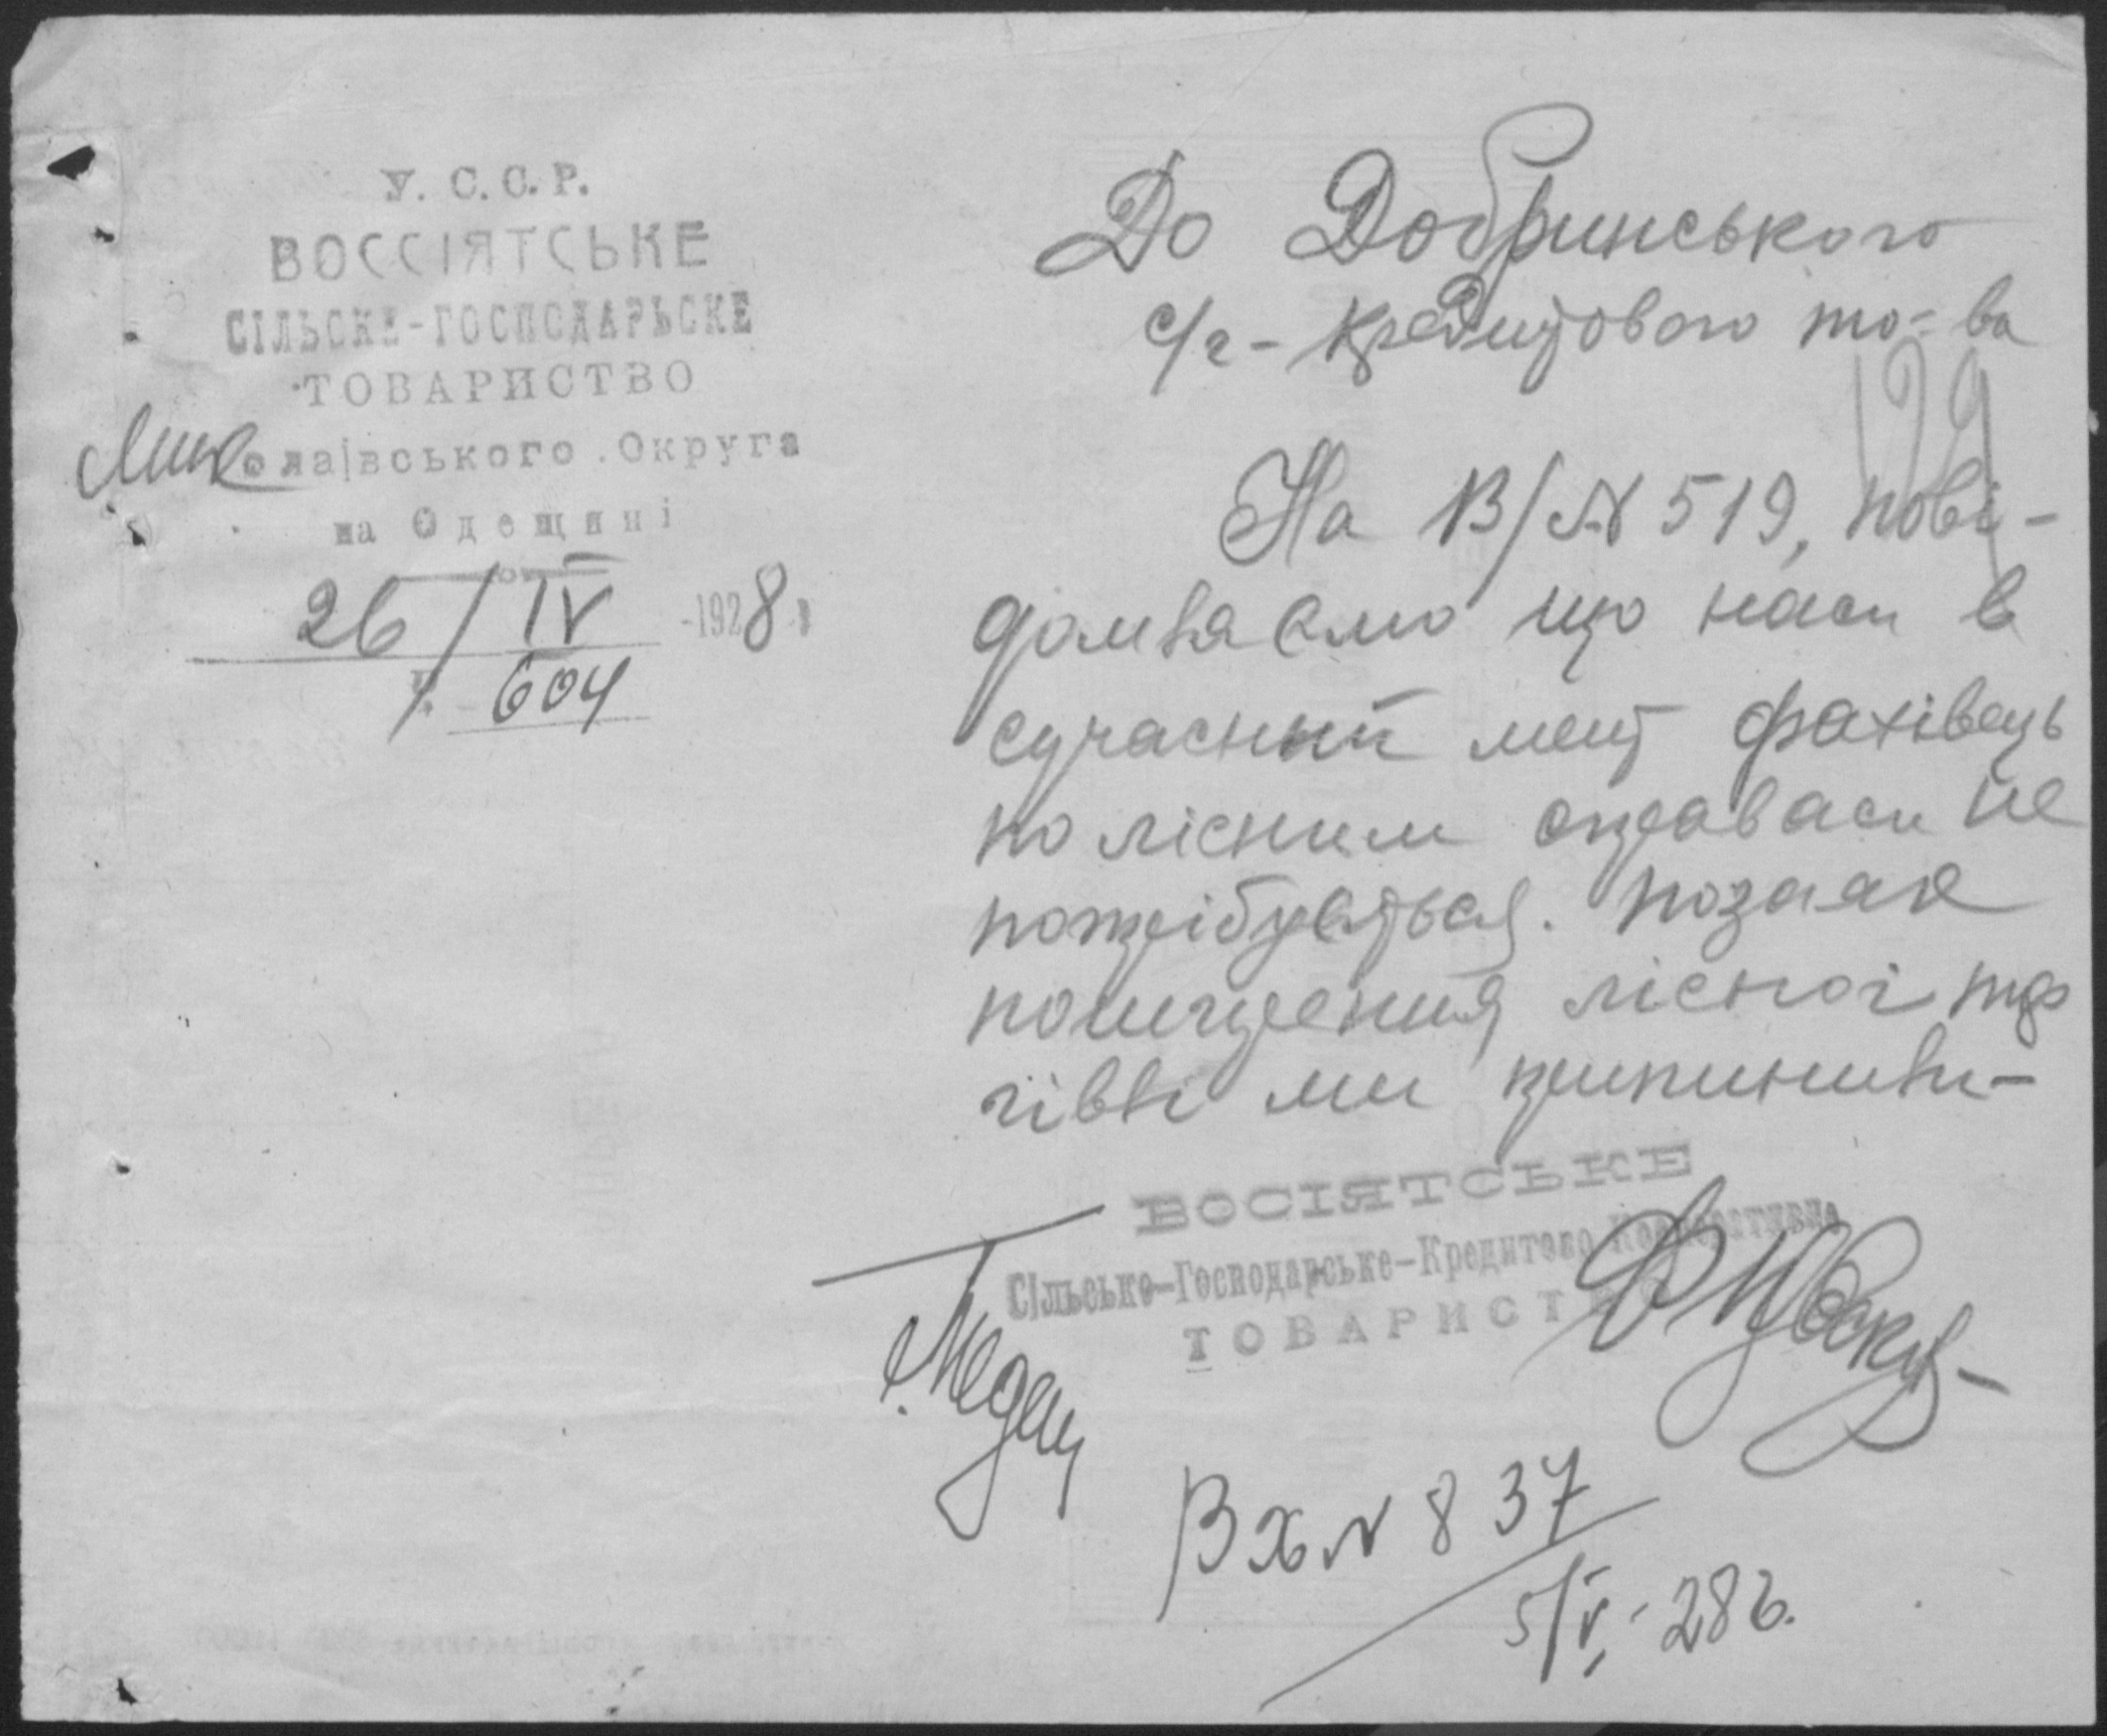 У. С. С. Р.
ВОССІЯТСЬКЕ
СІЛЬСКЕ-ГОСПОДАРЬСКЕ
ТОВАРИСТВО
Миколаівського Округа
на Одещині
26/IV 1928
№ 604
До Добринського
с/г-кредитового то-ва
129
На В/№ 519, пові-
домляємо що нам в
сучасный мент фахівець
по лісним справам не
потрібується. позаяк
поширення лісноі тор
гівлі ми припинили-
ВОСІЯТСЬКЕ
Сільсько-Господарське-Кредитово Кооперативне
ТОВАРИСТВО
Вх № 837
5/V-28 г.